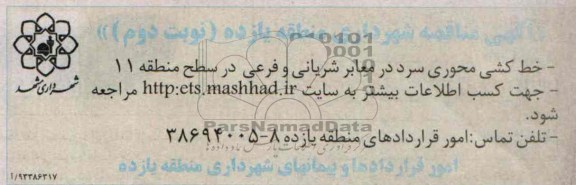 آگهی مناقصه شهرداری منطقه یازده (نوبت دوم)»
- خط کشی محوری سرد در معابر شریانی و فرعی در سطح منطقه ۱۱
- جهت کسب اطلاعات بیشتر به سایت http:ets.mashhad.ir مراجعه
شود.
- تلفن تماس:امور قراردادهای منطقه یازده ۸-۳۸۶۹۴۰۰۵
امور قراردادها و پیمانهای شهرداری منطقه یازده
شهرداری مشهد
۱/۹۳۳۸۶۳۱۷
ParsNamadData